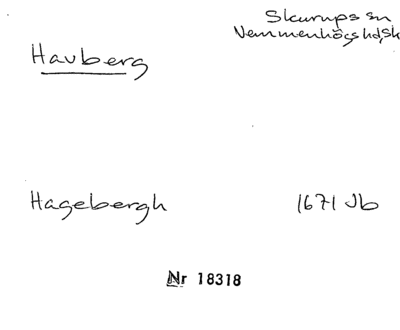 Skurups sn
Vemmenhögs hd, Sk
Havberg
Hagebergh 1671 Jb
Nr 18318